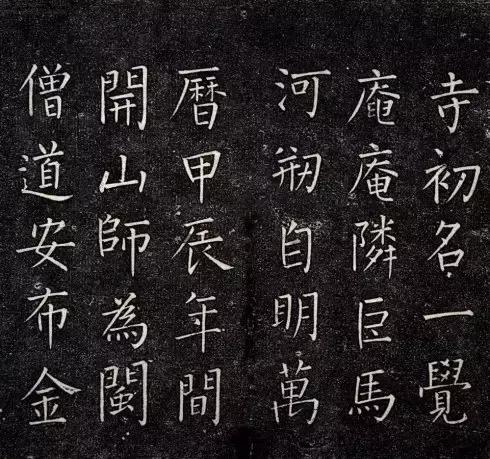 寺初名一覺
庵庵隣巨馬
河刱自明萬
暦甲辰年間
開山師為閩
僧道安布金